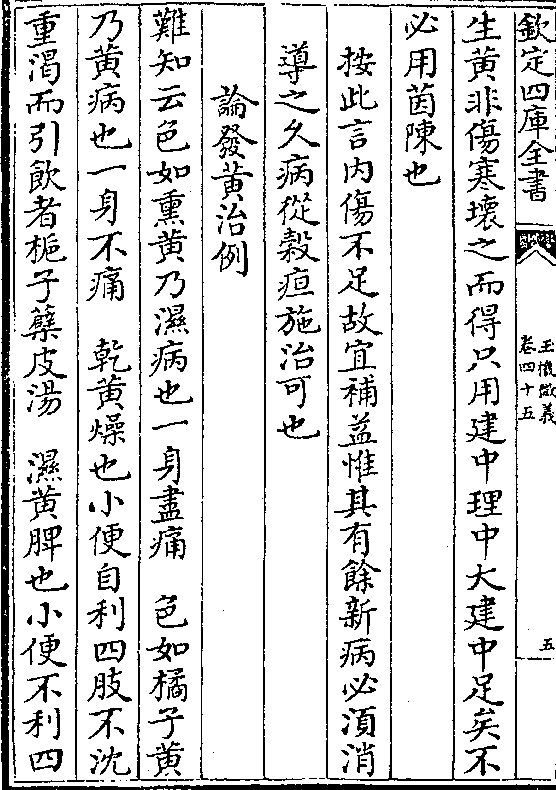 欽定四庫全書
玉機微義
卷四十五
五
生黄非傷寒壞之而得只用建中理中大建中足矣不
必用茵陳也
按此言内傷不足故宜補益惟其有餘新病必須消
導之久病從榖疸施治可也
論發黄治例
難知云色如熏黄乃濕病也一身盡痛　色如橘子黄
乃黄病也一身不痛　乾黄燥也小便自利四肢不沈
重渇而引飲者梔子蘗皮湯　濕黄脾也小便不利四